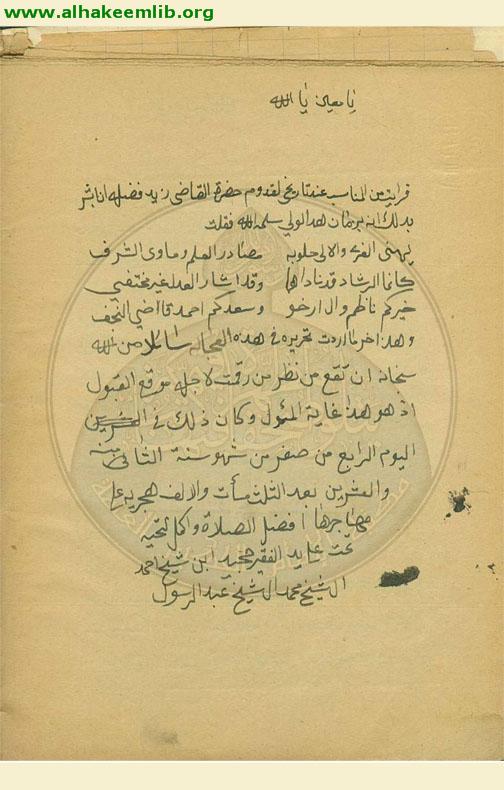 www.alhakeemlib.org
يا معين يا الله
فرايت من المناسب عند تاريخي لقدوم حضرة القاضي زيد فضله انا بشر
بدلك ابه برهان هد الولي سلمه الله فقلت
يهنى الغري والالى حلو به مصادر العلم وماوى الشرف
كانما الرشاد قد ناداهم وقد اشار العدل غير مختفي
خيركم ناظم وال ارخو وسعدكم احمد قاضي النجف
وهدا اخر ما اردت تحريره في هده العجاله سائلا من الله
سبحانه ان تقع من نظر من رقت لاجله موقع القبول
اذ هو هدا غاية المئمول وكان ذلك في
اليوم الرابع من صفر من شهو سنة الثاني
والعشرين بعد الثلث مأت والالف هجريه على
مهاجرها افضل الصلاة واكمل تحيه
تمت على يد الفقير مجيد ابن شيخ احمد
الشيخ محمد الشيخ عبد الرسول